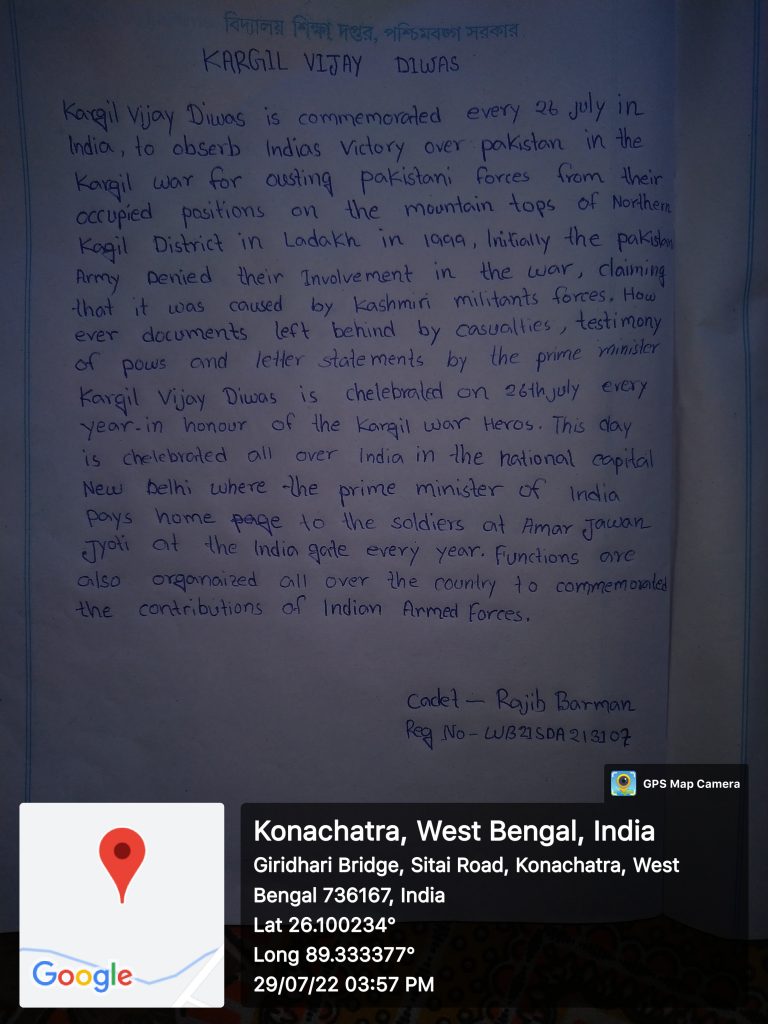 বিদ্যালয় শিক্ষা দপ্তর, পশ্চিমবঙ্গ সরকার
KARGIL VIJAY DIWAS
Kargil Vijay Diwas is commemorated every 26 july in
India, to obserb Indias Victory over pakistan in the
Kargil war for ousting pakistani forces from their
occupied positions on the mountain tops of Northern
Kagil District in Ladakh in 1999, Initially the pakistan
Army Denied their Involvement in the war, claiming
that it was caused by Kashmiri militants forces. How
ever documents left behind by casualties, testimony
of pows and letter statements by the prime minister
Kargil Vijay Diwas is chelebrated on 26th july every
year-in honour of the Kargil war Heros. This day
is chelebrated all over India in the national capital
New Delhi where the prime minister of India
pays home page to the soldiers at Amar Jawan
Jyoti at the India gate every year. Functions are
also organaized all over the country to commemorated
the contributions of Indian Armed Forces.
Cadet - Rajib Barman
Reg No - WB21SDA213107
GPS Map Camera
Konachatra, West Bengal, India
Giridhari Bridge, Sitai Road, Konachatra, West
Bengal 736167, India
Lat 26.100234°
Long 89.333377°
29/07/22 03:57 PM
Google